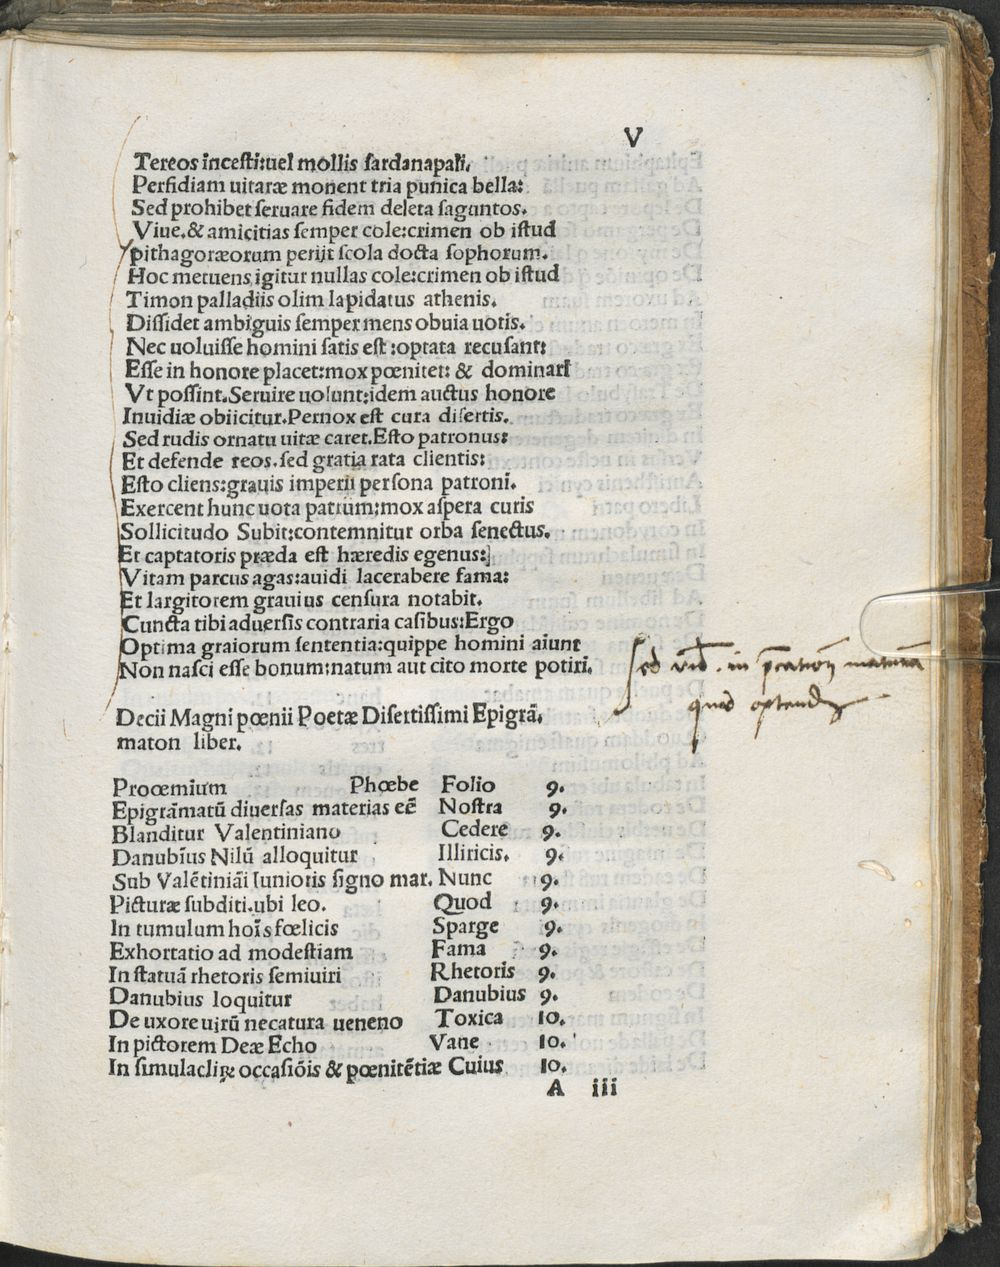 V
Tereos incesti:uel mollis sardanapali.
Perfidiam uitaræ monent tria punica bella:
Sed prohibet seruare fidem deleta saguntos.
Viue.& amicitias semper cole:crimen ob istud
pithagoræorum perijt scola docta sophorum.
Hoc metuens igitur nullas cole:crimen ob istud
Timon palladiis olim lapidatus athenis.
Dissidet ambiguis semper mens obuia uotis.
Nec uoluisse homini satis est:optata recusant:
Esse in honore placet:mox pœnitet: & dominari
Vt possint.Seruire uolunt:idem auctus honore
Inuidiæ obiicitur.Pernox est cura disertis.
Sed rudis ornatu uitæ caret.Esto patronus:
Et defende reos.sed gratia rata clientis:
Esto cliens:grauis imperii persona patroni.
Exercent hunc uota patrum;mox aspera curis
Sollicitudo Subit:contemnitur orba senectus.
Et captatoris præda est hæredis egenus:
Vitam parcus agas:auidi lacerabere fama:
Et largitorem grauius censura notabit.
Cuncta tibi aduersis contraria casibus:Ergo
Optima graiorum sententia:quippe homini aiunt
Non nasci esse bonum:natum aut cito morte potiri.
Sed in
quod
Decii Magni pœnii Poetæ Disertissimi Epigrã.
maton liber.
Proœmium Phœbe Folio 9.
Epigrãmatũ diuersas materias eẽ Nostra 9.
Blanditur Valentiniano Cedere 9.
Danubius Nilũ alloquitur Illiricis. 9.
Sub Valẽtiniãi Iunioris signo mar. Nunc 9.
Picturæ subditi.ubi leo. Quod 9.
In tumulum hoĩs fœlicis Sparge 9.
Exhortatio ad modestiam Fama 9.
In statuã rhetoris semiuiri Rhetoris 9.
Danubius loquitur Danubius 9.
De uxore uirũ necatura ueneno Toxica 10.
In pictorem Deæ Echo Vane 10.
In simulaclꝝ occasiõis & pœnitẽtiæ Cuius 10.
A iii